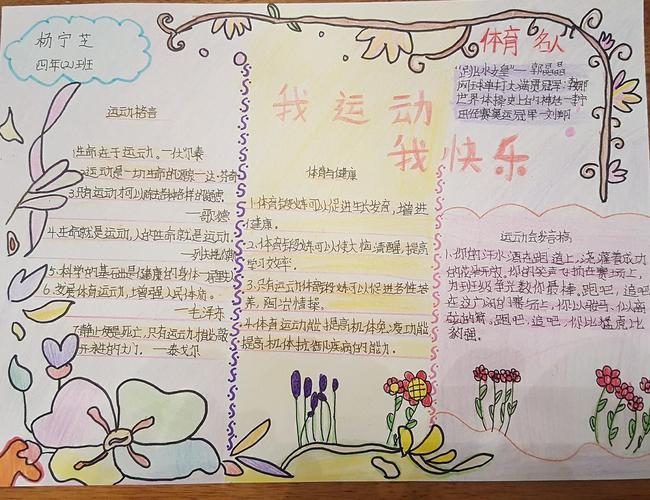 杨宁芝
四年(2)班
我运动
我快乐
体育名人
"跳水女皇"——郭晶晶
网球单打大满贯冠军:李娜
世界体操史上的神话—李宁
田径赛奥运冠军—刘翔
运动格言
1.生命在于运动。—伏尔泰
2.运动是一切生命的源泉—达·芬奇
3.只有运动才可以除去各种各样的疑虑。
——歌德
4.生命就是运动,人的生命就是运动。
—列夫·托尔斯泰
5.科学的基础是健康的身体—居里夫人
6.发展体育运动,增强人民体质。
—毛泽东
7.静止便是死亡,只有运动才能敲
开永生的大门。—泰戈尔
体育与健康
1.体育锻炼可以促进生长发育,增进
健康。
2.体育锻炼可以使大脑清醒,提高
学习效率。
3.只有运动体育锻炼可以促进多性培
养,陶冶情操。
4.体育运动能提高机体免疫功能
提高机体抗御疾病的能力。
运动会发言稿
1.你的汗水洒在跑道上,浇灌着成功
的花朵开放,你的笑声飞扬在赛场上,
为班级争光数你最棒。跑吧,追吧
在这广阔的赛场上,你似骏马,似离
弦的箭,跑吧,追吧,你比猛虎比
豺强。